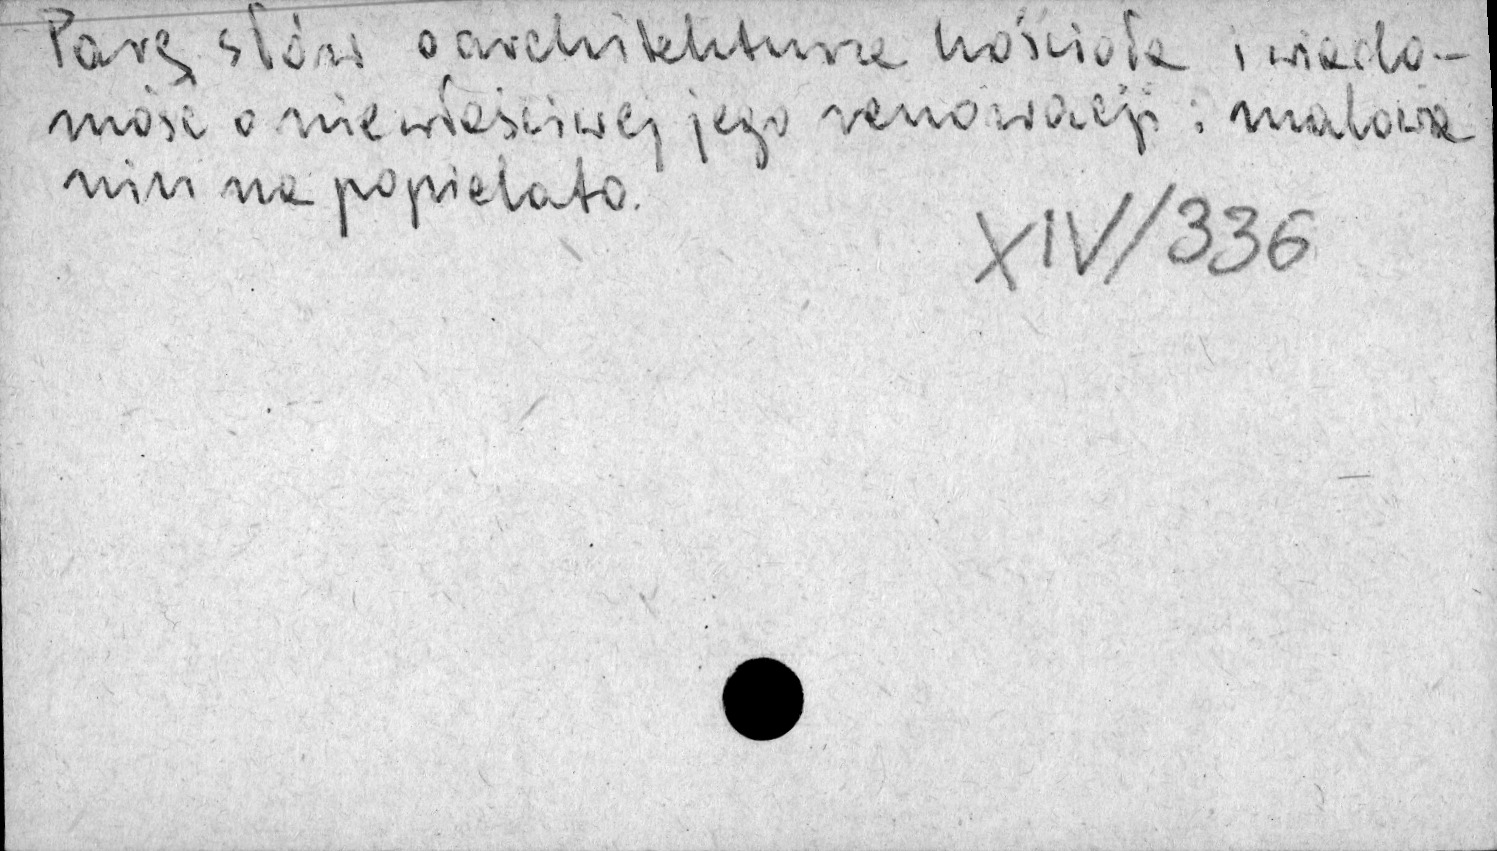 Parę słów o architekturze kościoła i wiado-
mość o niewłaściwej jego renowacji: malowa
niu na popielato.
XIV/336